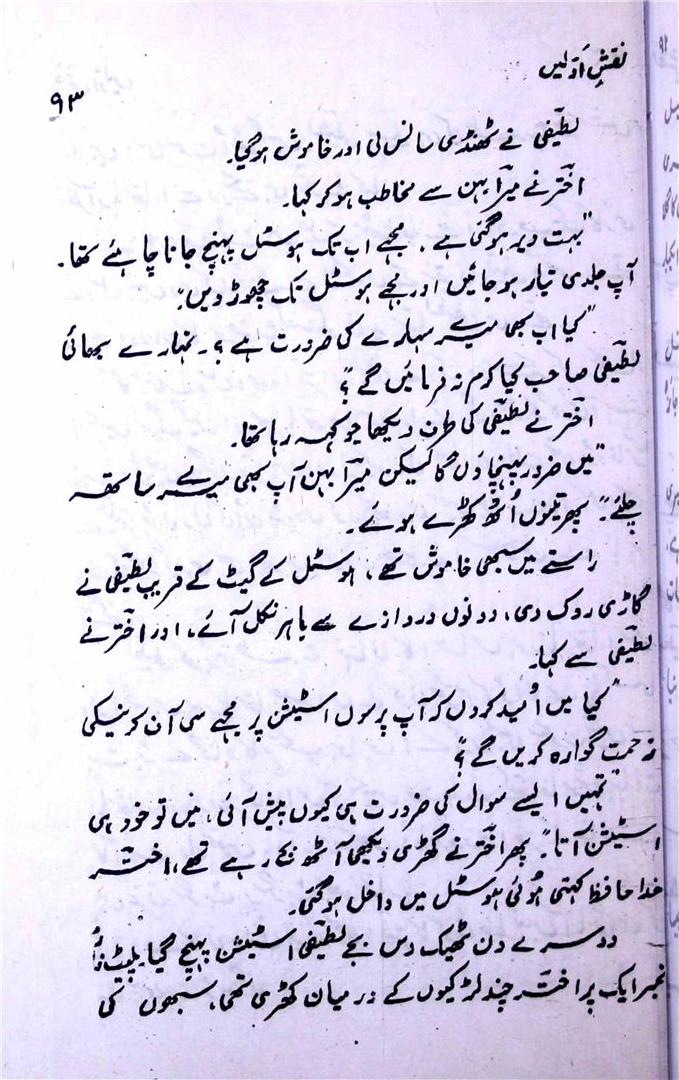 نقشِ اَوّلیں
۹۳
لطیفی نے ٹھنڈی سانس لی اور خاموش ہوگیا۔
اختر نے میرا بہن سے مخاطب ہوکر کہا۔
"بہت دیر ہوگئی ہے۔ مجھے اب تک ہوسٹل پہنچ جانا چاہئے تھا۔
آپ جلدی تیار ہو جائیں اور مجھے ہوسٹل تک چھوڑ دیں"۔
"کیا اب بھی میرے سہارے کی ضرورت ہے؟۔ تمہارے بھائی
لطیفی صاحب کیا کرم نہ فرمائیں گے؟"
اختر نے لطیفی کی طرف دیکھا جو کہہ رہا تھا۔
"میں ضرور پہنچا دَں گا لیکن میرا بہن آپ بھی میرے ساتھ
چلئے"۔ پھر تینوں اُٹھ کھڑے ہوئے۔
راستے میں سبھی خاموش تھے، ہوسٹل کے گیٹ کے قریب لطیفی نے
گاڑی روک دی، دونوں دروازے سے باہر نکل آئے، اور اختر نے
لطیفی سے کہا۔
"کیا میں اُمید کروں کہ آپ پرسوں اسٹیشن پر مجھے سی آن کرنیکی
زحمت گوارہ کریں گے؟"
تمہیں ایسے سوال کی ضرورت ہی کیوں پیش آئی، میں تو خود ہی
اسٹیشن آتا"۔ پھر اختر نے گھڑی دیکھی آٹھ بج رہے تھے، اختر
خدا حافظ کہتی ہوئی ہوسٹل میں داخل ہوگئی۔
دوسرے دن ٹھیک دس بجے لطیفی اسٹیشن پہنچ گیا۔
نمبر ایک پر اختر چند لڑکیوں کے درمیان کھڑی تھی، سبھوں کی